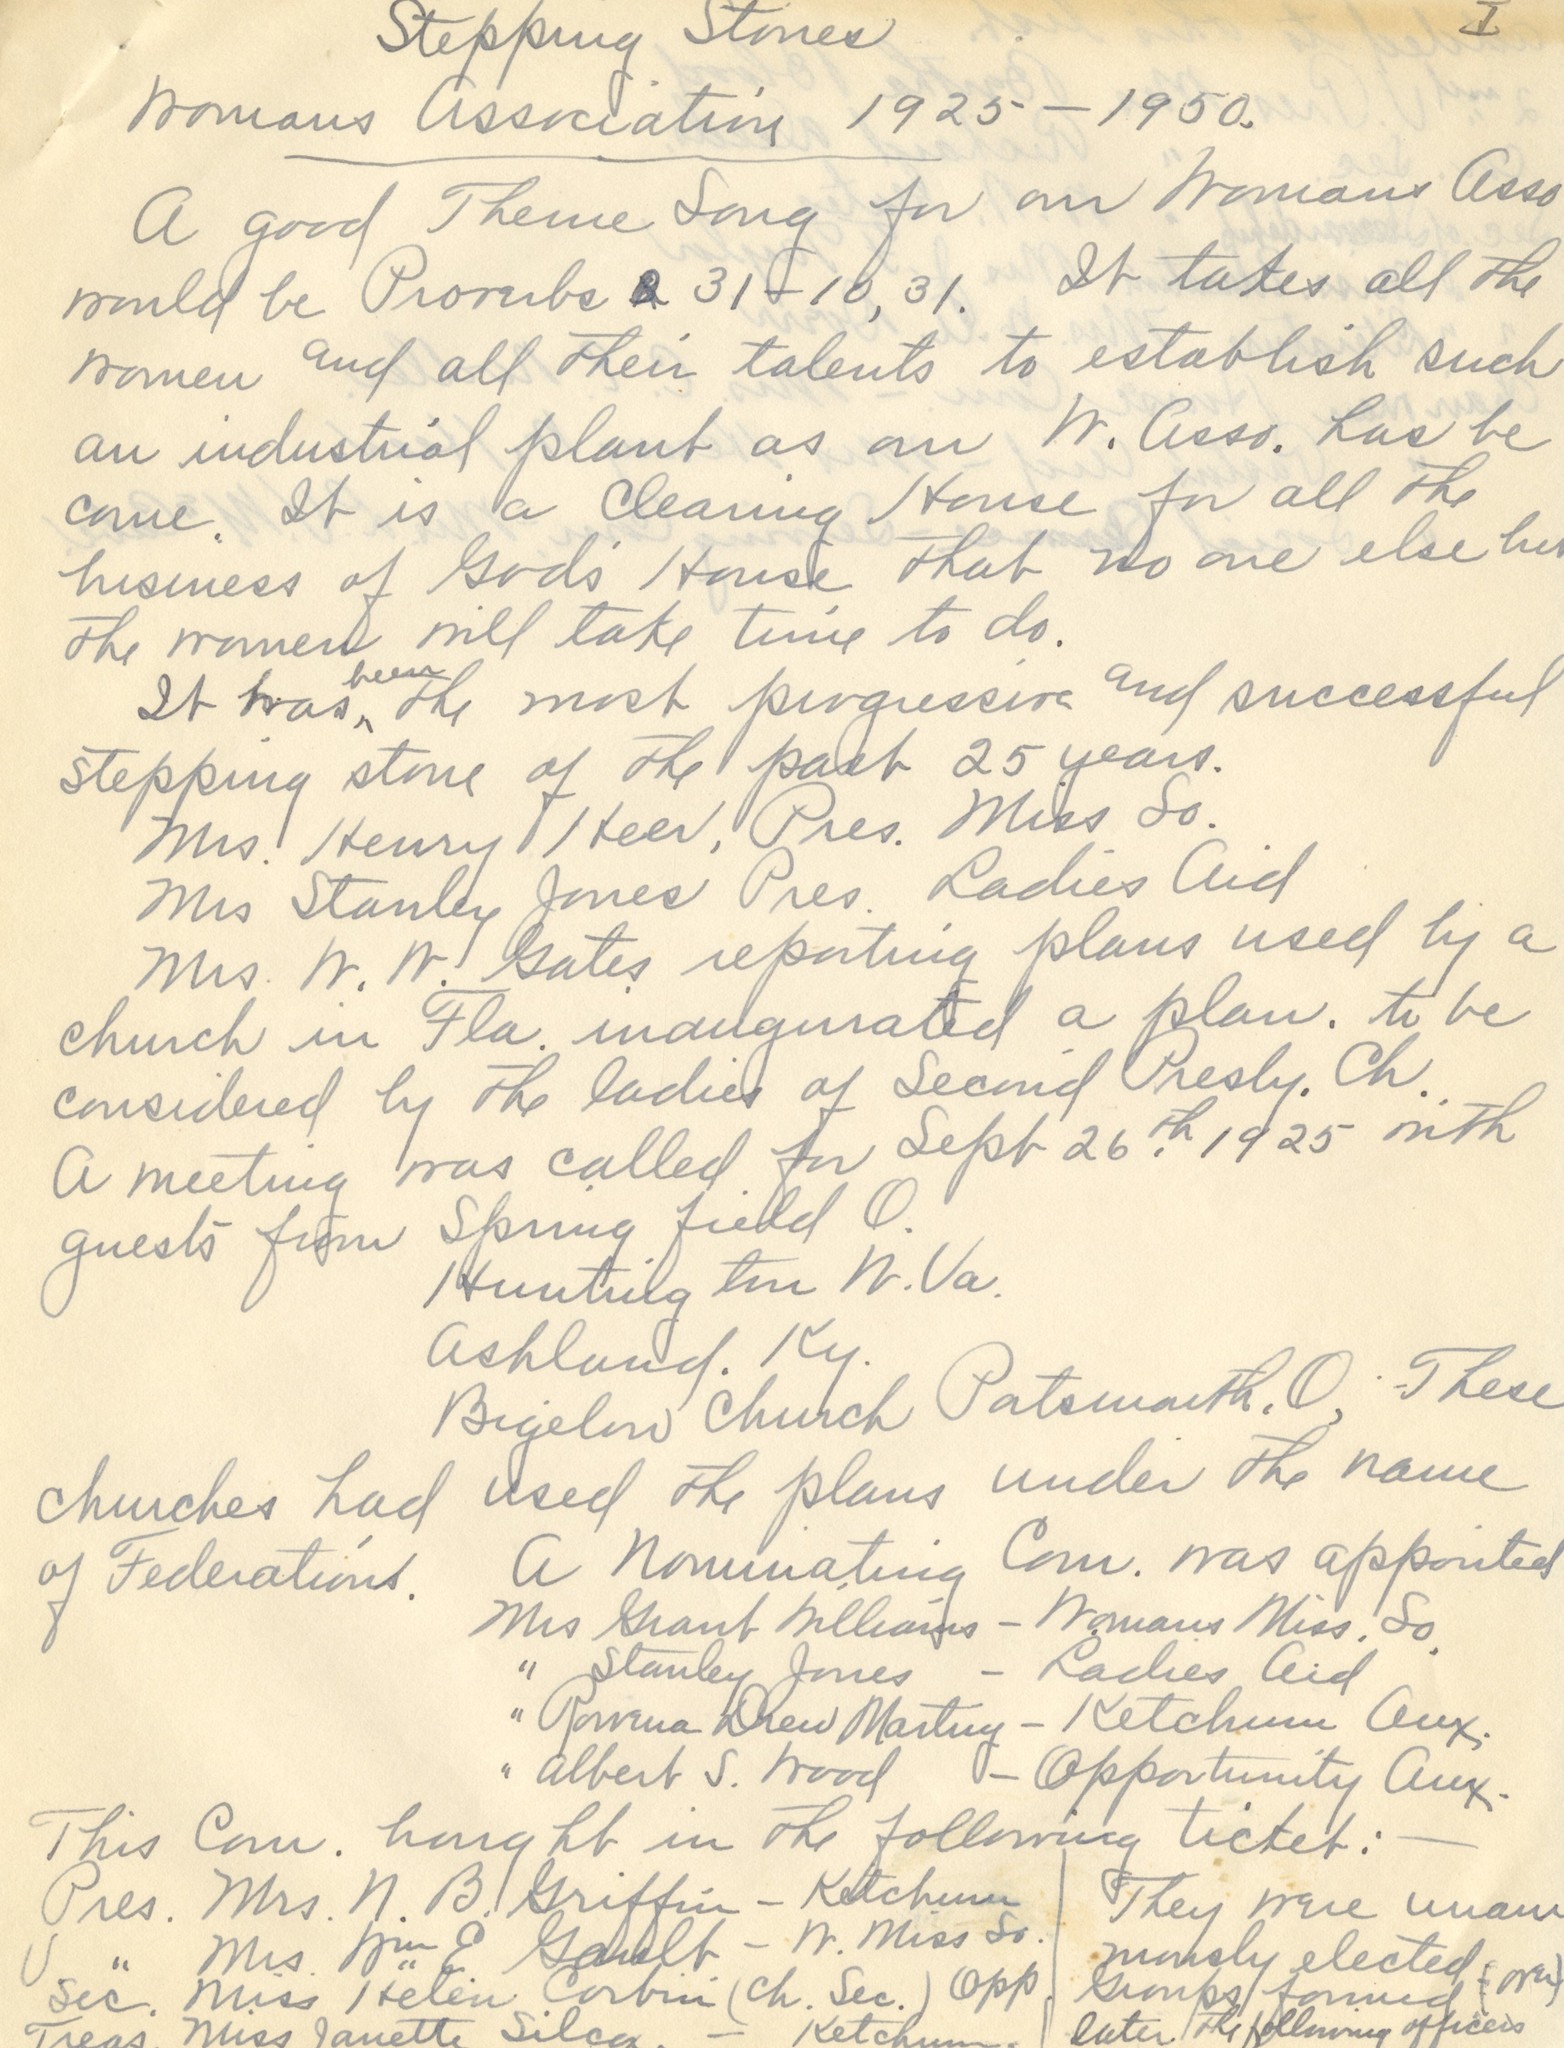 I
Stepping Stones
Womans Association 1925-1950.
A good Theme Song for our Womans Asso
would be Proverbs 31-10,31. It takes all the
women and all their talents to establish such
an industrial plant as our W. Asso. has be
come. It is a Clearing House for all the
business of God's House that no one else but
the women will take time to do.
It has been the most progressive and successful
stepping stone of the past 25 years.
Mrs. Henry Heer, Pres. Miss So.
Mrs Stanley Jones Pres. Ladies Aid
Mrs. W. W. Gates reporting plans used by a
church in Fla. inaugurated a plan. to be
considered by the ladies of Second Presby. Ch.
A meeting was called for Sept 26th 1925 with
guests from Springfield O.
Huntington W. Va.
Ashland. Ky.
Bigelow Church Portsmouth, O. These
churches had used the plans under the name
of Federations. A Nominating Com. was appointed
Mrs Grant Williams - Womans Miss. So.
" Stanley Jones - Ladies Aid
" Rowena Drew Marting - Ketchum Aux.
" Albert S. Wood - Opportunity Aux.
This Com. bought in the following ticket: -
Pres. Mrs. N. B. Griffin - Ketchum
V " Mrs. Wm E Gault - W. Miss So.
Sec. Miss Helen Corbin (Ch. Sec.) Opp.
Treas. Miss Janette Silcox. - Ketchum.
They were unani
mously elected (over)
Groups formed
later the following officers